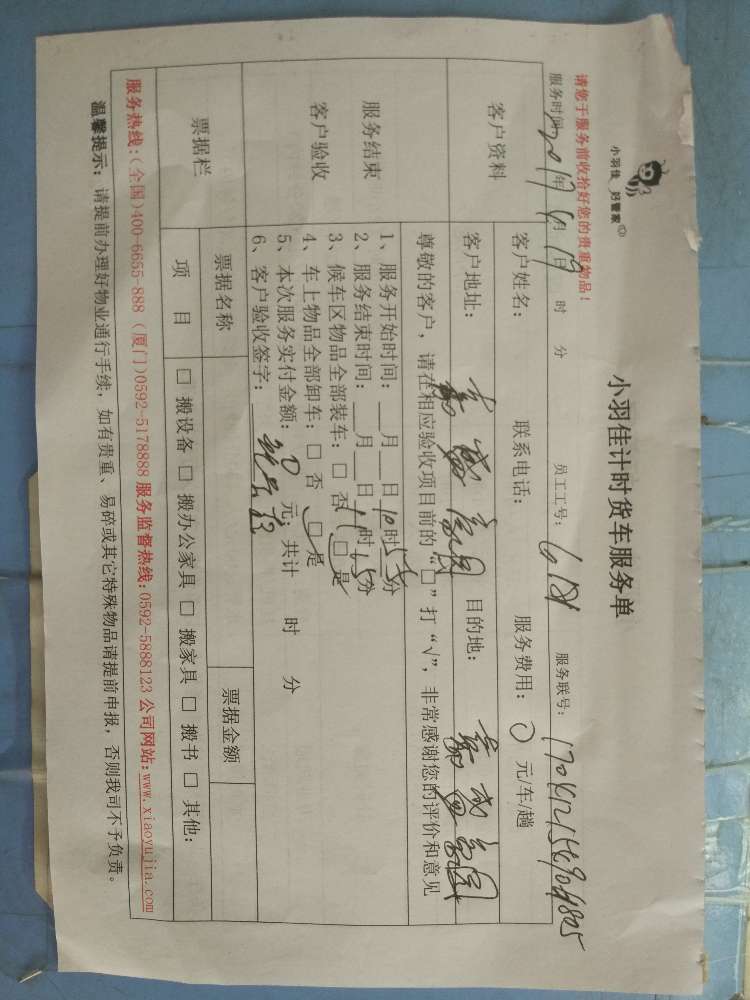 小羽佳 好管家
小羽佳计时货车服务单
请您于服务前收拾好您的贵重物品！
服务时间: 2017年 月 19日 时 分 员工工号: 服务联号:
客户资料
客户姓名: 联系电话: 服务费用: 元/车/趟
客户地址: 目的地:
尊敬的客户，请在相应验收项目前的“□”打“√”，非常感谢您的评价和意见
服务结束
客户验收
1、服务开始时间: 月 日10时55分
2、服务结束时间: 月 日11时 分
3、候车区物品全部装车: □ 否 □ 是
4、车上物品全部卸车: □ 否 □ 是
5、本次服务实付金额: 元，共计 时 分
6、客户验收签字:
票据栏
票据名称 票据金额
项 目 □ 搬设备 □ 搬办公家具 □ 搬家具 □ 搬书 □ 其他:
服务热线:(全国)400-6655-888 (厦门)0592-5178888 服务监督热线:0592-5888123 公司网站:www.xiaoyujia.com
温馨提示: 请提前办理好物业通行手续，如有贵重、易碎或其它特殊物品请提前申报，否则我司不予负责。